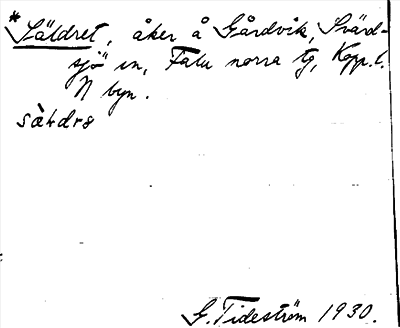 *Säldret, åker å Gårdvik, Svärd-
sjö sn, Falu norra tg, Kopp. l.
N byn.
G. Tideström 1930.